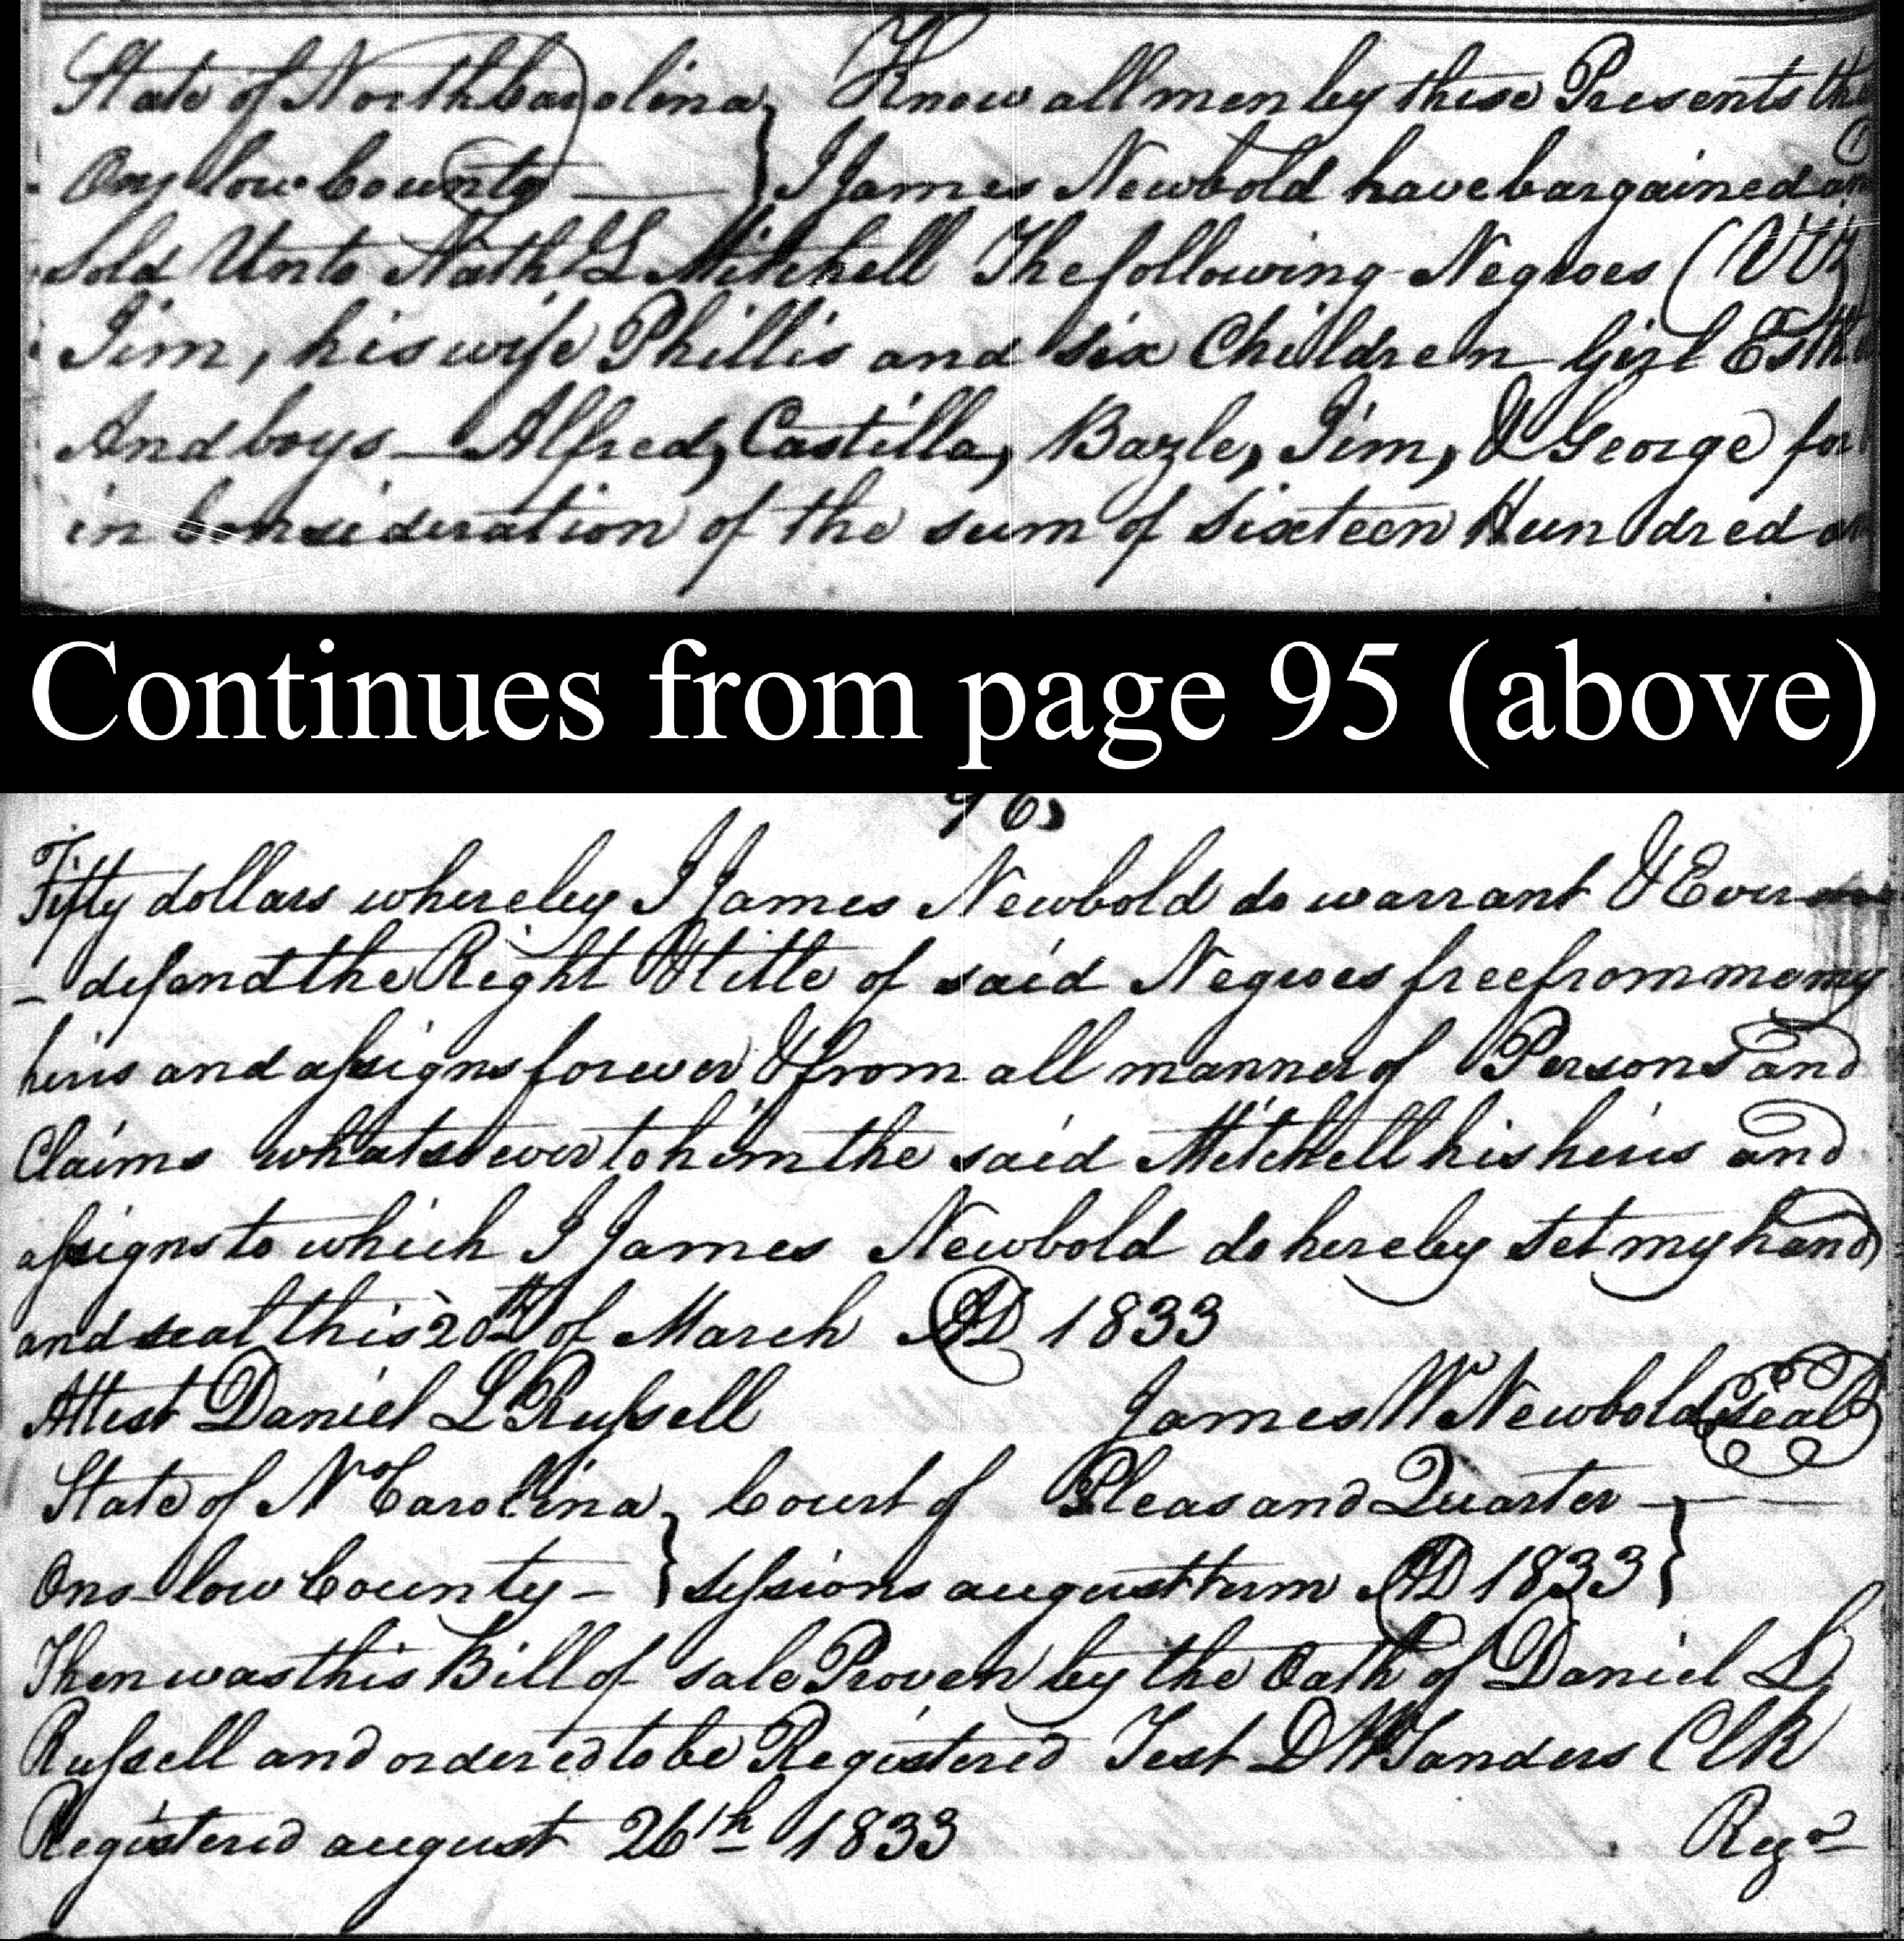 State of North Carolina } Know all men by these Presents
Onslow County — } I James Newbold have bargained
sold Unto Nath L Mitchell The following Negroes (Viz)
Jim, his wife Phillis and six Children Girl
And boys — Alfred, Castilla, Bazle, Jim, & George for
in Consideration of the sum of sixteen Hundred
Continues from page 95 (above)
96
Fifty dollars whereby I James Newbold do warrant & Ever
- defend the Right & title of said Negroes free from me my
heirs and assigns forever & from all manner of Persons and
Claims whatsoever to him the said Mitchell his heirs and
assigns to which I James Newbold do hereby set my hand
and seal this 20th of March AD 1833
Attest Daniel L Russell James W Newbold (seal)
State of No Carolina } Court of Pleas and Quarter — }
Onslow County - } sessions august term AD 1833 }
Then was this Bill of sale Proven by the Oath of Daniel L
Russell and ordered to be Registered Test D W Sanders Clk
Registered august 26th 1833 Regr